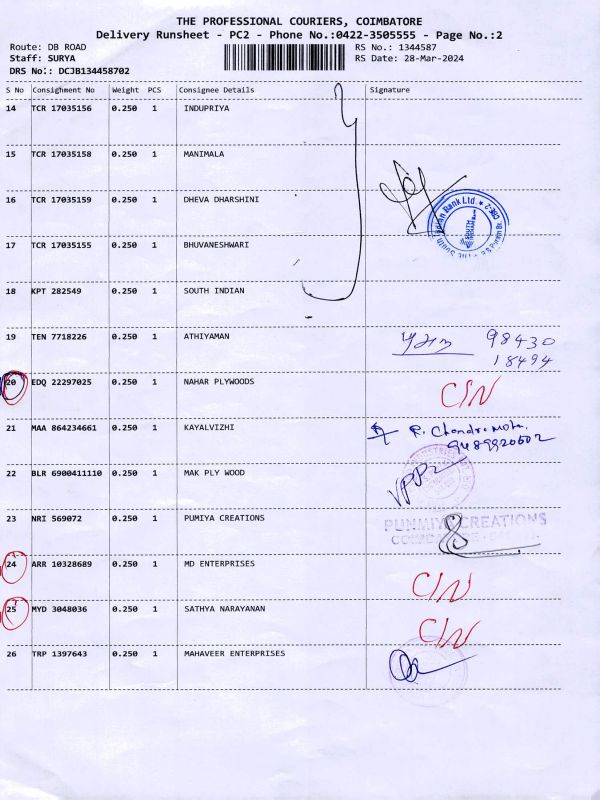 THE PROFESSIONAL COURIERS, COIMBATORE
Delivery Runsheet - PC2 - Phone No.:0422-3505555 - Page No.:2
Route: DB ROAD RS No.: 1344587
Staff: SURYA RS Date: 28-Mar-2024
DRS No.: DCJB134458702
S No Consighment No Weight PCS Consignee Details Signature
14 TCR 17035156 0.250 1 INDUPRIYA
15 TCR 17035158 0.250 1 MANIMALA
16 TCR 17035159 0.250 1 DHEVA DHARSHINI
17 TCR 17035155 0.250 1 BHUVANESHWARI
18 KPT 282549 0.250 1 SOUTH INDIAN
19 TEN 7718226 0.250 1 ATHIYAMAN 98430
18494
20 EDQ 22297025 0.250 1 NAHAR PLYWOODS C/N
21 MAA 864234661 0.250 1 KAYALVIZHI R. Chandra
9489920602
22 BLR 6900411110 0.250 1 MAK PLY WOOD
23 NRI 569072 0.250 1 PUMIYA CREATIONS PUNMIYA CREATIONS
24 ARR 10328689 0.250 1 MD ENTERPRISES C/N
25 MYD 3048036 0.250 1 SATHYA NARAYANAN C/N
26 TRP 1397643 0.250 1 MAHAVEER ENTERPRISES